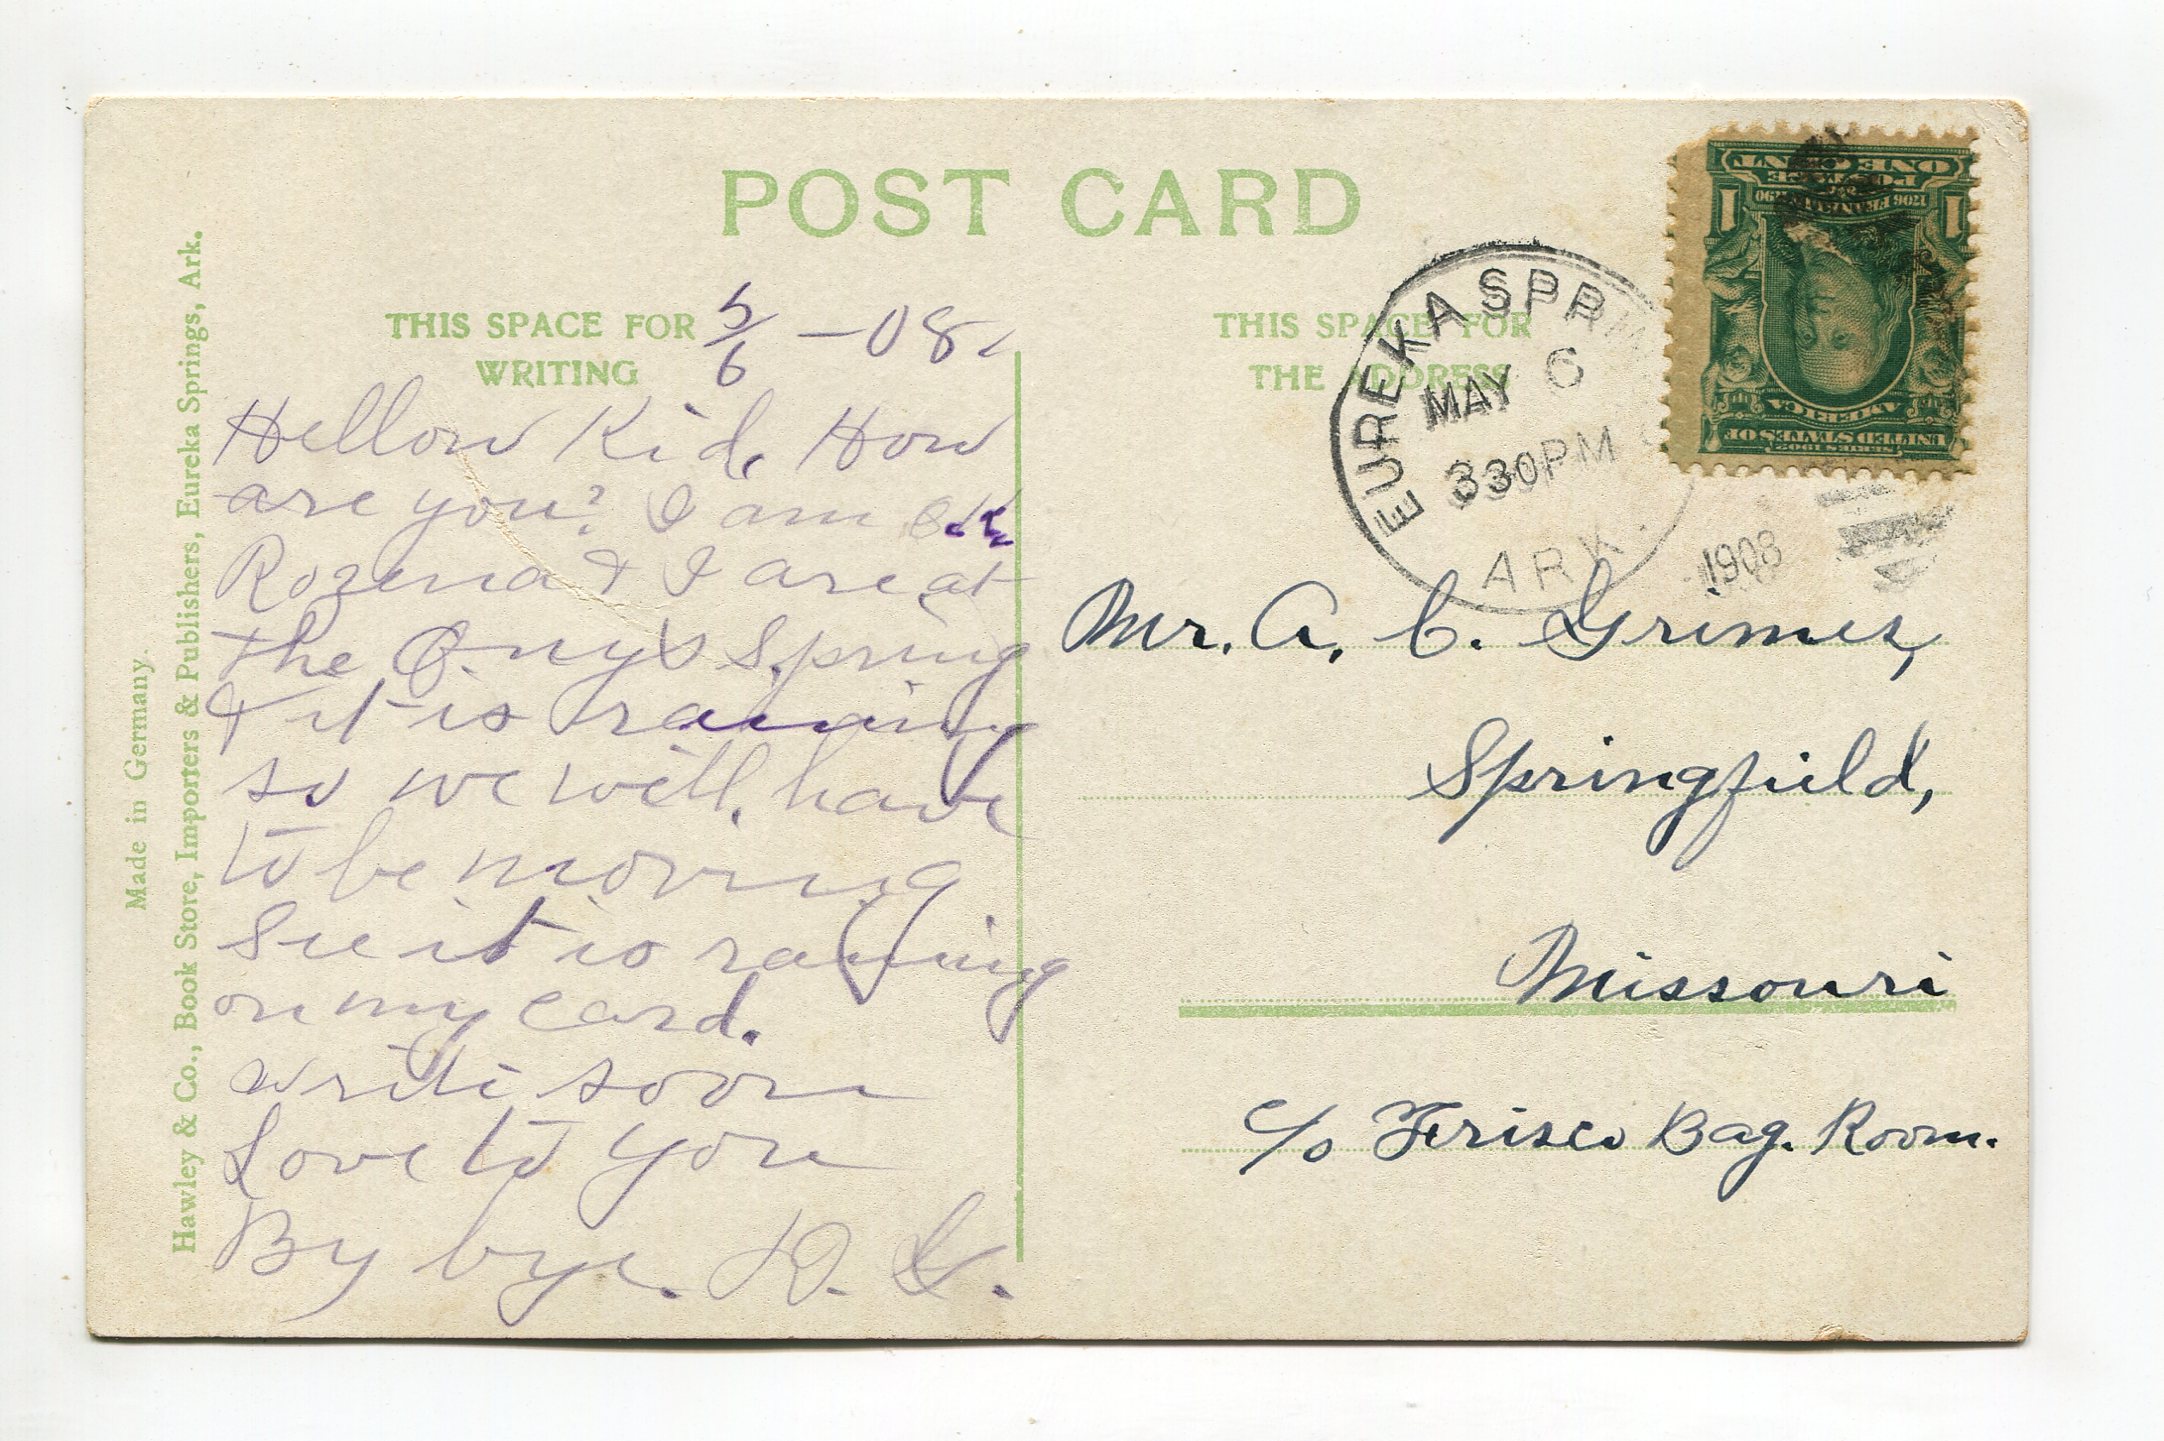 POST CARD
THIS SPACE FOR
WRITING
5/6 -08.
Hellow Kid, How
are you? I am O.K.
Rozena & I are at
the Onyx Spring
& it is raining
so we will have
to be moving
See it is raining
on my card.
write soon
Love to you
By bye.
THIS SPACE FOR
THE ADDRESS
EUREKA SPRIN
MAY 6
330PM
ARK.
1908
Mr. A. C. Grimes,
Springfield,
Missouri
c/o Frisco Bag. Room.
ONE CENT
POSTAGE
1706 FRANKLIN 1790
1 1
AMERICA
UNITED STATES OF
SERIES 1902
Made in Germany.
Hawley & Co., Book Store, Importers & Publishers, Eureka Springs, Ark.